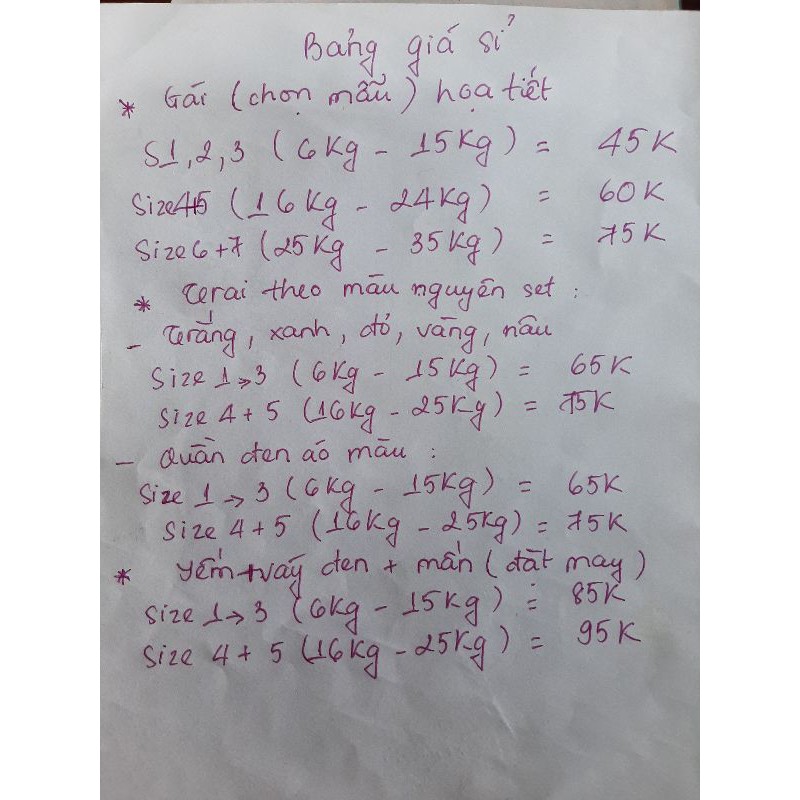 Bảng giá sỉ
* Gái (chọn mẫu) họa tiết
S1,2,3 (6Kg - 15Kg) = 45K
Size4+5 (16Kg - 24Kg) = 60K
Size6+7 (25Kg - 35Kg) = 75K
* Trai theo màu nguyên set :
- Trắng, xanh, đỏ, vàng, nâu
Size 1→3 (6Kg - 15Kg) = 65K
Size 4+5 (16Kg - 25Kg) = 75K
- Quần đen áo màu :
Size 1→3 (6Kg - 15Kg) = 65K
Size 4+5 (16Kg - 25Kg) = 75K
* Yếm+váy đen + mấn (đặt may)
Size 1→3 (6Kg - 15Kg) = 85K
Size 4+5 (16Kg - 25Kg) = 95K